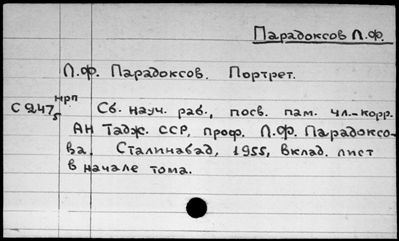 Парадоксов Л.Ф.
Л.Ф. Парадоксов. Портрет.
нрп
С 247 Сб. науч. раб., посв. пам. чл.-корр.
5
АН Тадж. ССР, проф. Л.Ф. Парадоксо-
ва. Сталинабад, 1955, вклад. лист
в начале тома.